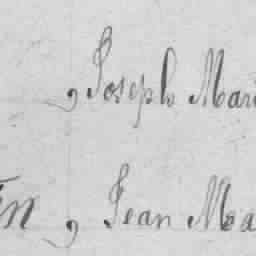 , Joseph Mari
, Jean Ma